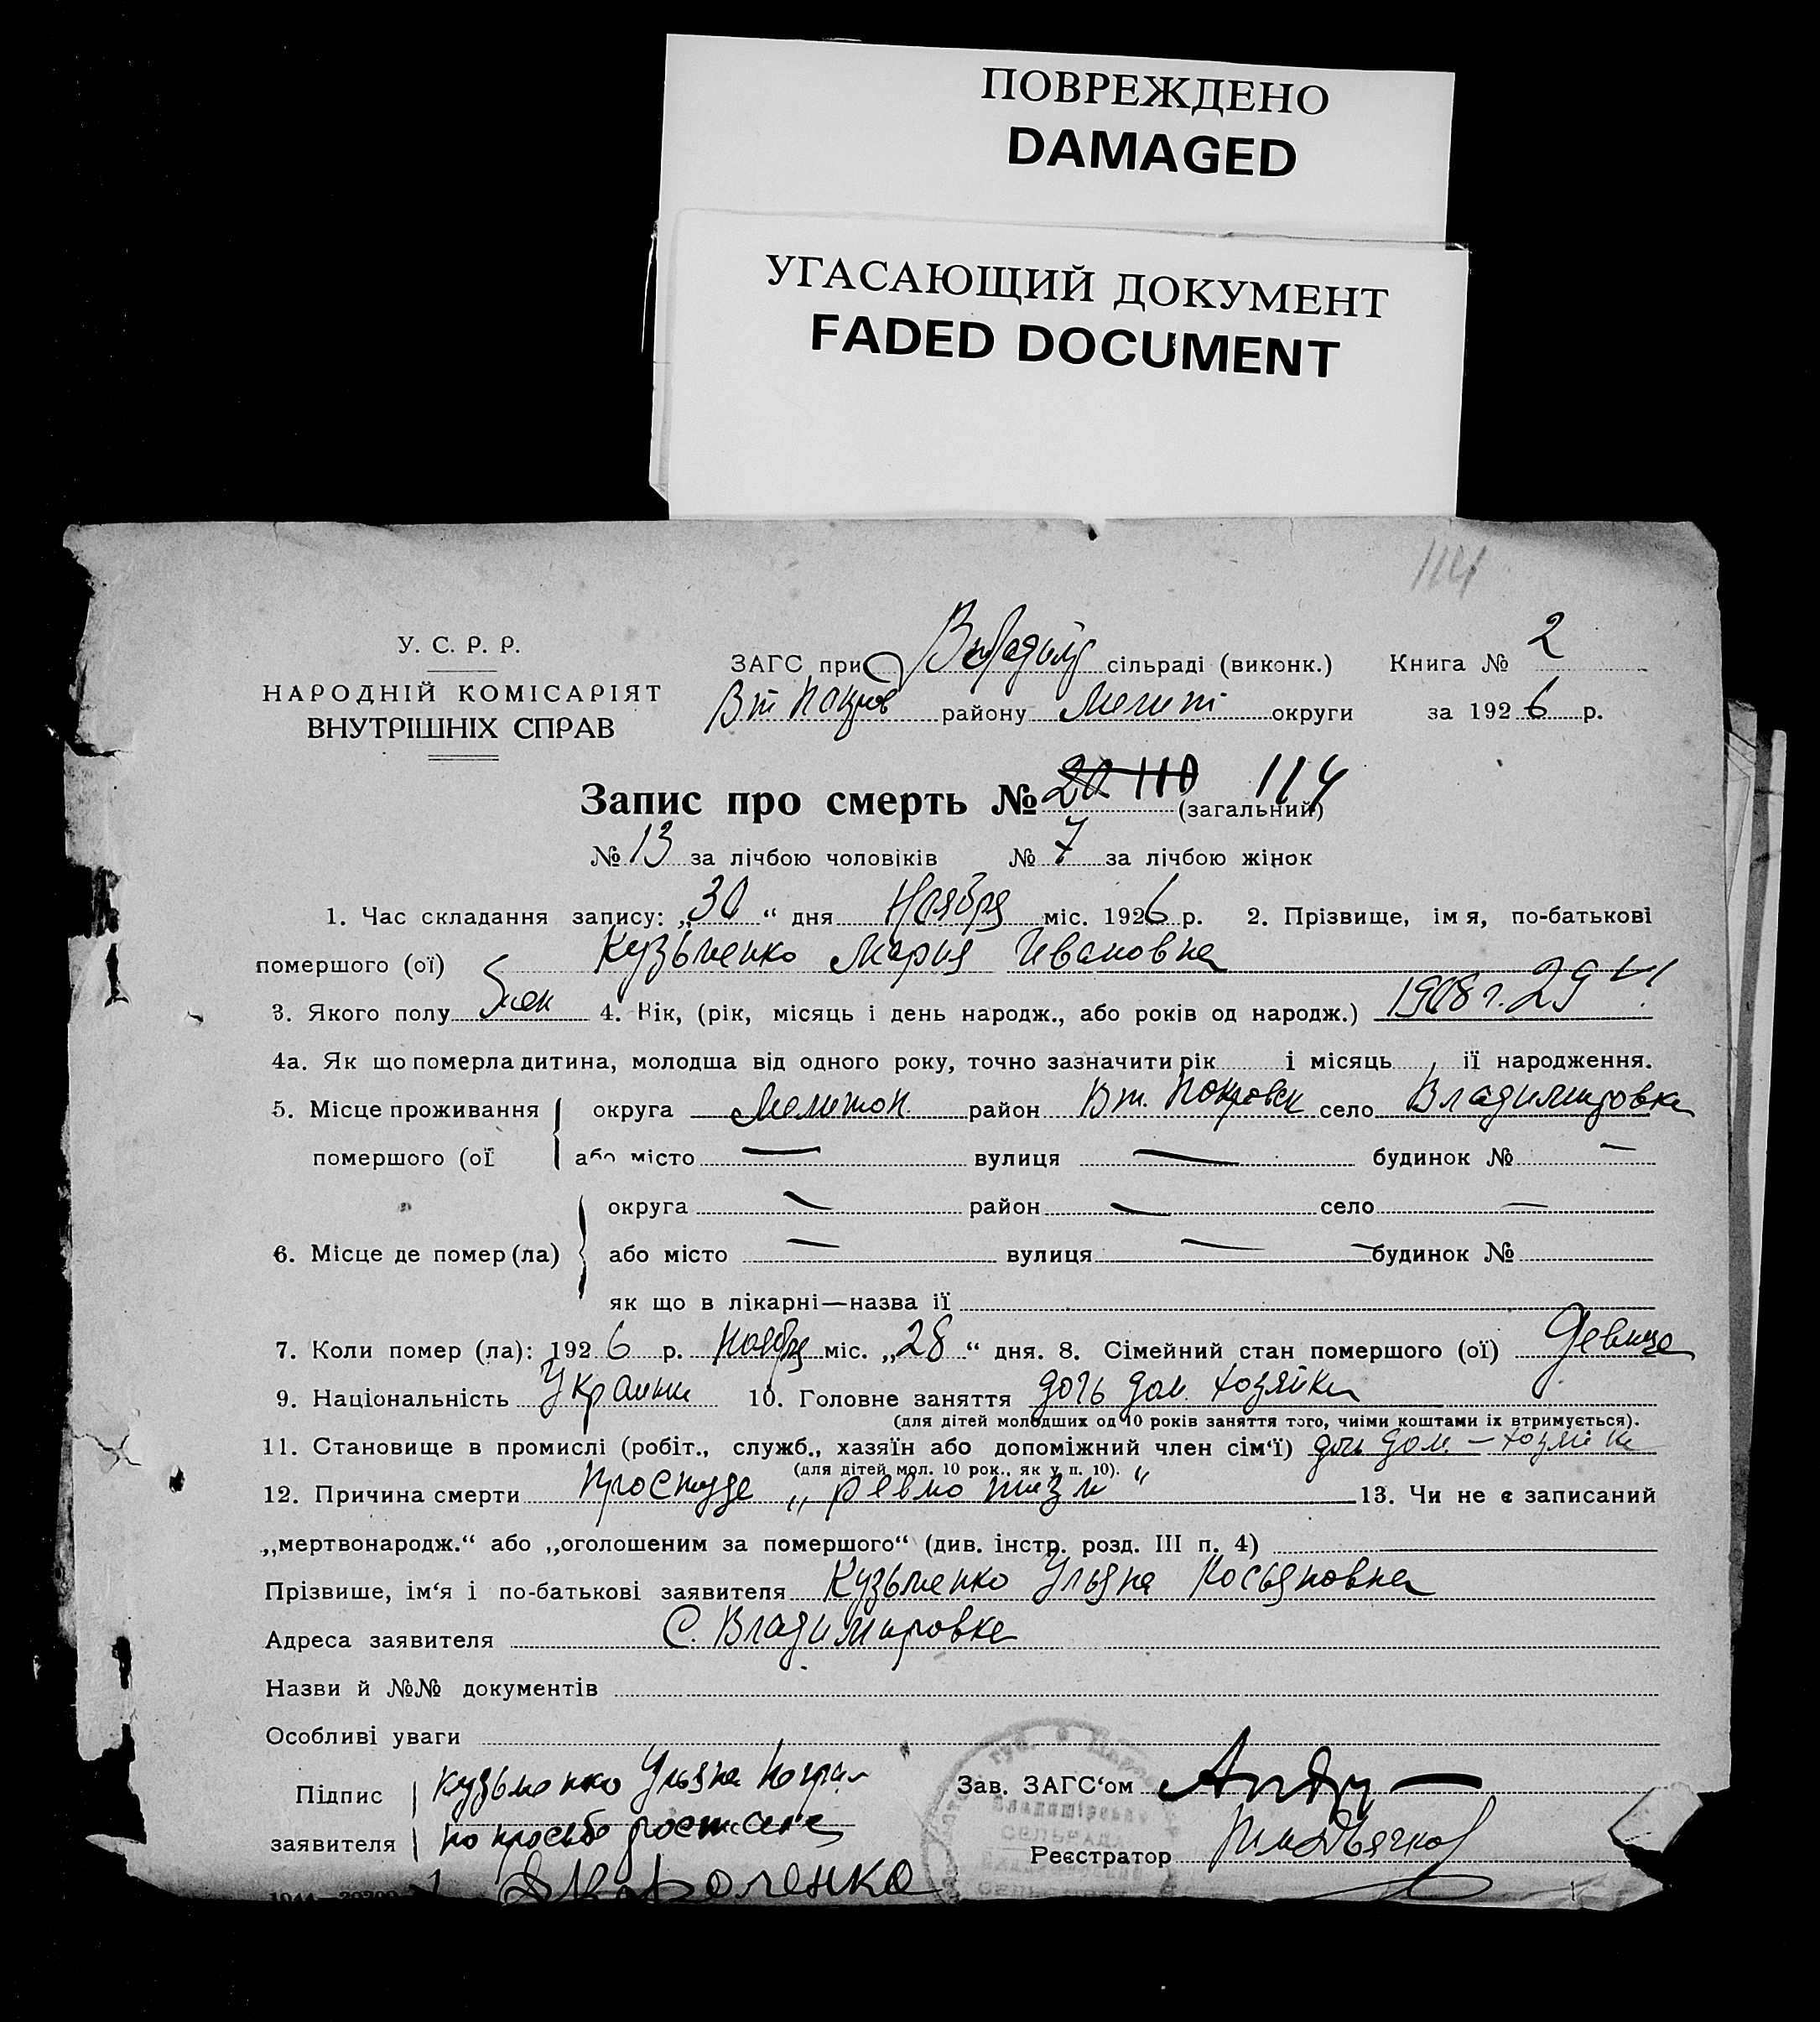 ПОВРЕЖДЕНО
DAMAGED
УГАСАЮЩИЙ ДОКУМЕНТ
FADED DOCUMENT
114
У. С. Р. Р.
НАРОДНІЙ КОМІСАРІЯТ
ВНУТРІШНІХ СПРАВ
ЗАГС при Владим сільраді (виконк.) Книга № 2
Вт Покров району Мелит округи за 1926 р.
Запис про смерть № 20 110 114
(загальний)
№ 13 за лічбою чоловіків № 7 за лічбою жінок
1. Час складання запису: „30“ дня Ноября міс. 1926 р. 2. Прізвище, імя, по-батькові
помершого (ої) Кузьменко Мария Ивановна
3. Якого полу жен 4. Вік, (рік, місяць і день народж., або років од народж.) 1908 г. 29 VI
4а. Як що померла дитина, молодша від одного року, точно зазначити рік і місяць, її народження.
5. Місце проживання округа Мелитоп. район Вт. Покровск село Владимировка
помершого (ої або місто — вулиця — будинок № —
округа — район — село —
6. Місце де помер (ла) або місто — вулиця — будинок №
як що в лікарні—назва її
7. Коли помер (ла): 1926 р. Ноября міс. „28“ дня. 8. Сімейний стан помершого (ої) девица
9. Національність Украинк 10. Головне заняття дочь дом. хозяйки
(для дітей молодших од 10 років заняття того, чиїми коштами їх втримується).
11. Становище в промислі (робіт., служб., хазяїн або допоміжний член сім‘ї) дочь дом. – хозяйк
(для дітей мол. 10 рок., як у п. 10).
12. Причина смерти Простуда „ревматизм“ 13. Чи не є записаний
„мертвонародж.“ або „оголошеним за помершого“ (див. інстр. розд. III п. 4)
Прізвише, ім‘я і по-батькові заявителя Кузьменко Ульяна Косьяновна
Адреса заявителя С. Владимировка
Назви й №№ документів
Особливі уваги
Підпис Кузьменко Ульяна
заявителя по просьбе расписался
Короленко
Зав. ЗАГС‘ом
Реєстратор
СЕЛЬРАДА